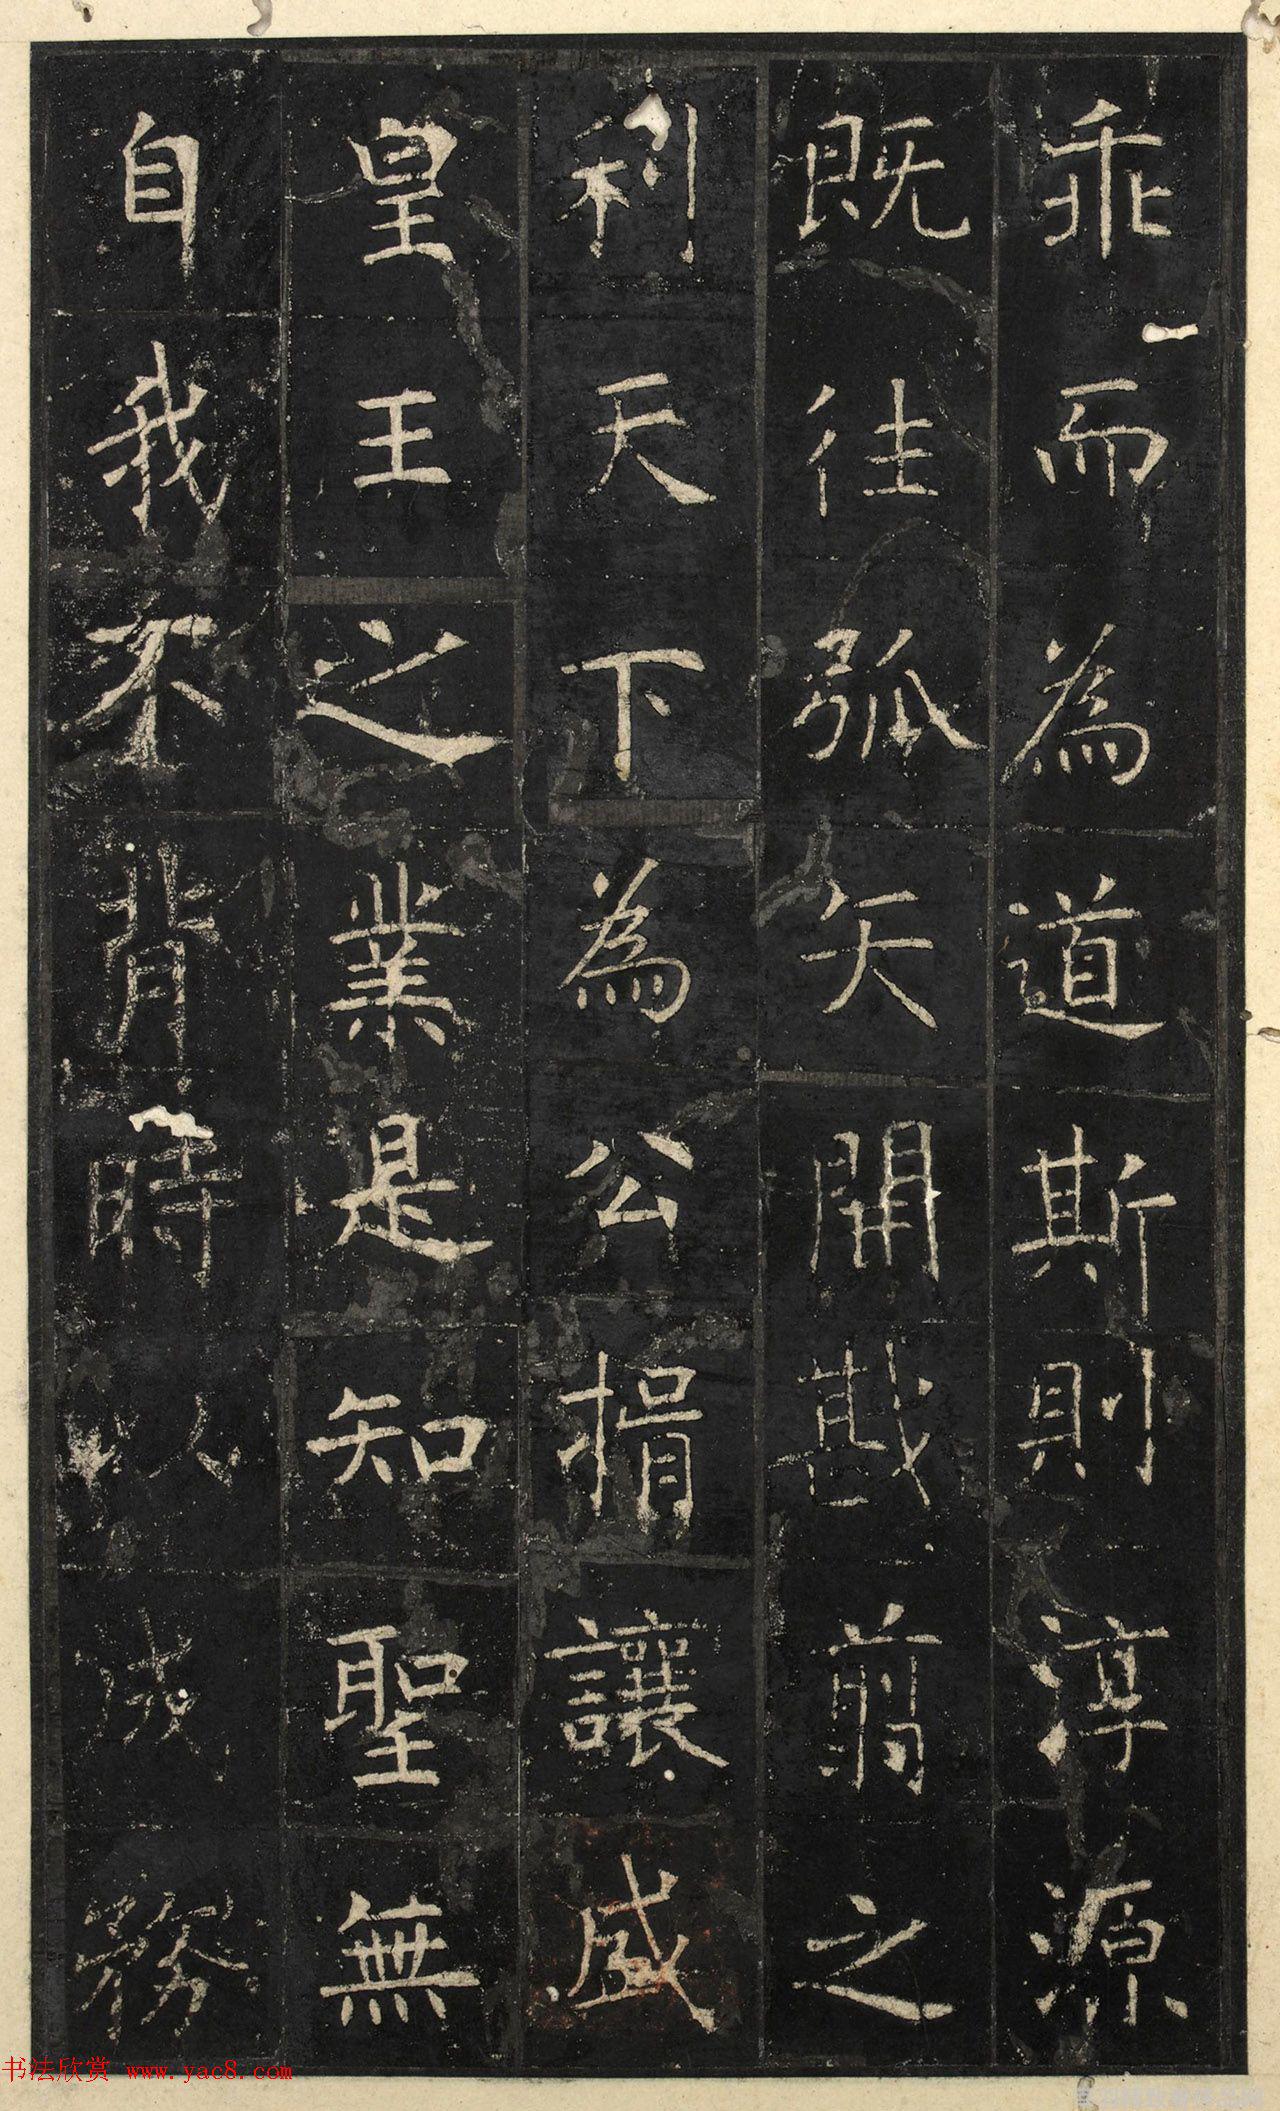 乖而為道斯則淳源
既往弧矢開戡翦之
利天下為公揖讓咸
皇王之業是知聖無
自我不背時以成務
书法欣赏 www.yac8.com